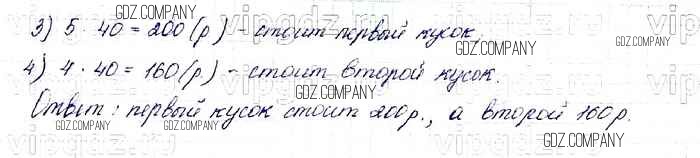 GDZ.COMPANY
3) 5 · 40 = 200 (р) - стоит первый кусок.
GDZ.COMPANY
4) 4 · 40 = 160 (р) - стоит второй кусок.
GDZ.COMPANY
Ответ: первый кусок стоит 200 р., а второй 160 р.
GDZ.COMPANY GDZ.COMPANY
GDZ.COMPANY
vipgdz.ru